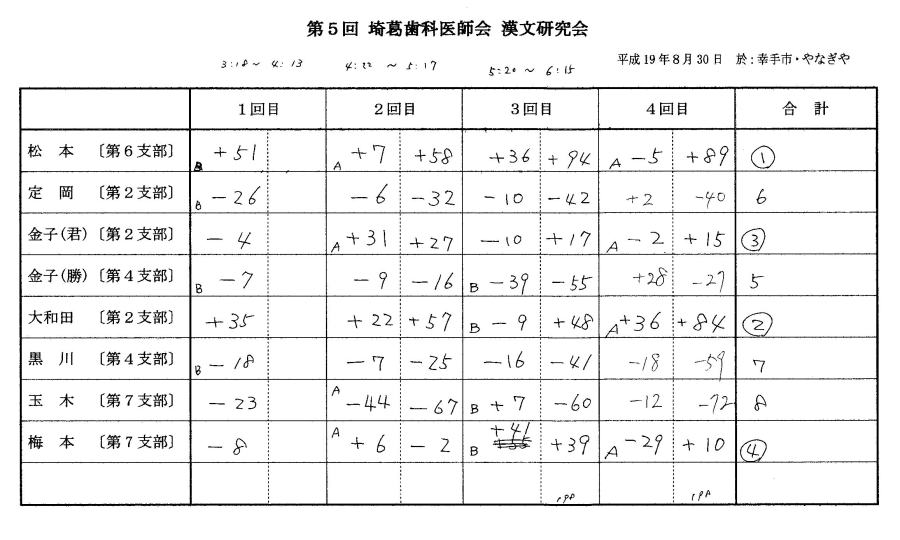 第5回 埼葛歯科医師会 漢文研究会
3:18～4:13 4:22～5:17 5:20～6:15 平成19年8月30日 於:幸手市・やなぎや
1回目 2回目 3回目 4回目 合計
松本 〔第6支部〕 B +51 A +7 +58 +36 +94 A -5 +89 ①
定岡 〔第2支部〕 B -26 -6 -32 -10 -42 +2 -40 6
金子(君) 〔第2支部〕 -4 A +31 +27 -10 +17 A -2 +15 ③
金子(勝) 〔第4支部〕 B -7 -9 -16 B -39 -55 +28 -27 5
大和田 〔第2支部〕 +35 +22 +57 B -9 +48 A +36 +84 ②
黒川 〔第4支部〕 B -18 -7 -25 -16 -41 -18 -59 7
玉木 〔第7支部〕 -23 A -44 -67 B +7 -60 -12 -72 8
梅本 〔第7支部〕 -8 A +6 -2 B +41 +39 A -29 +10 ④